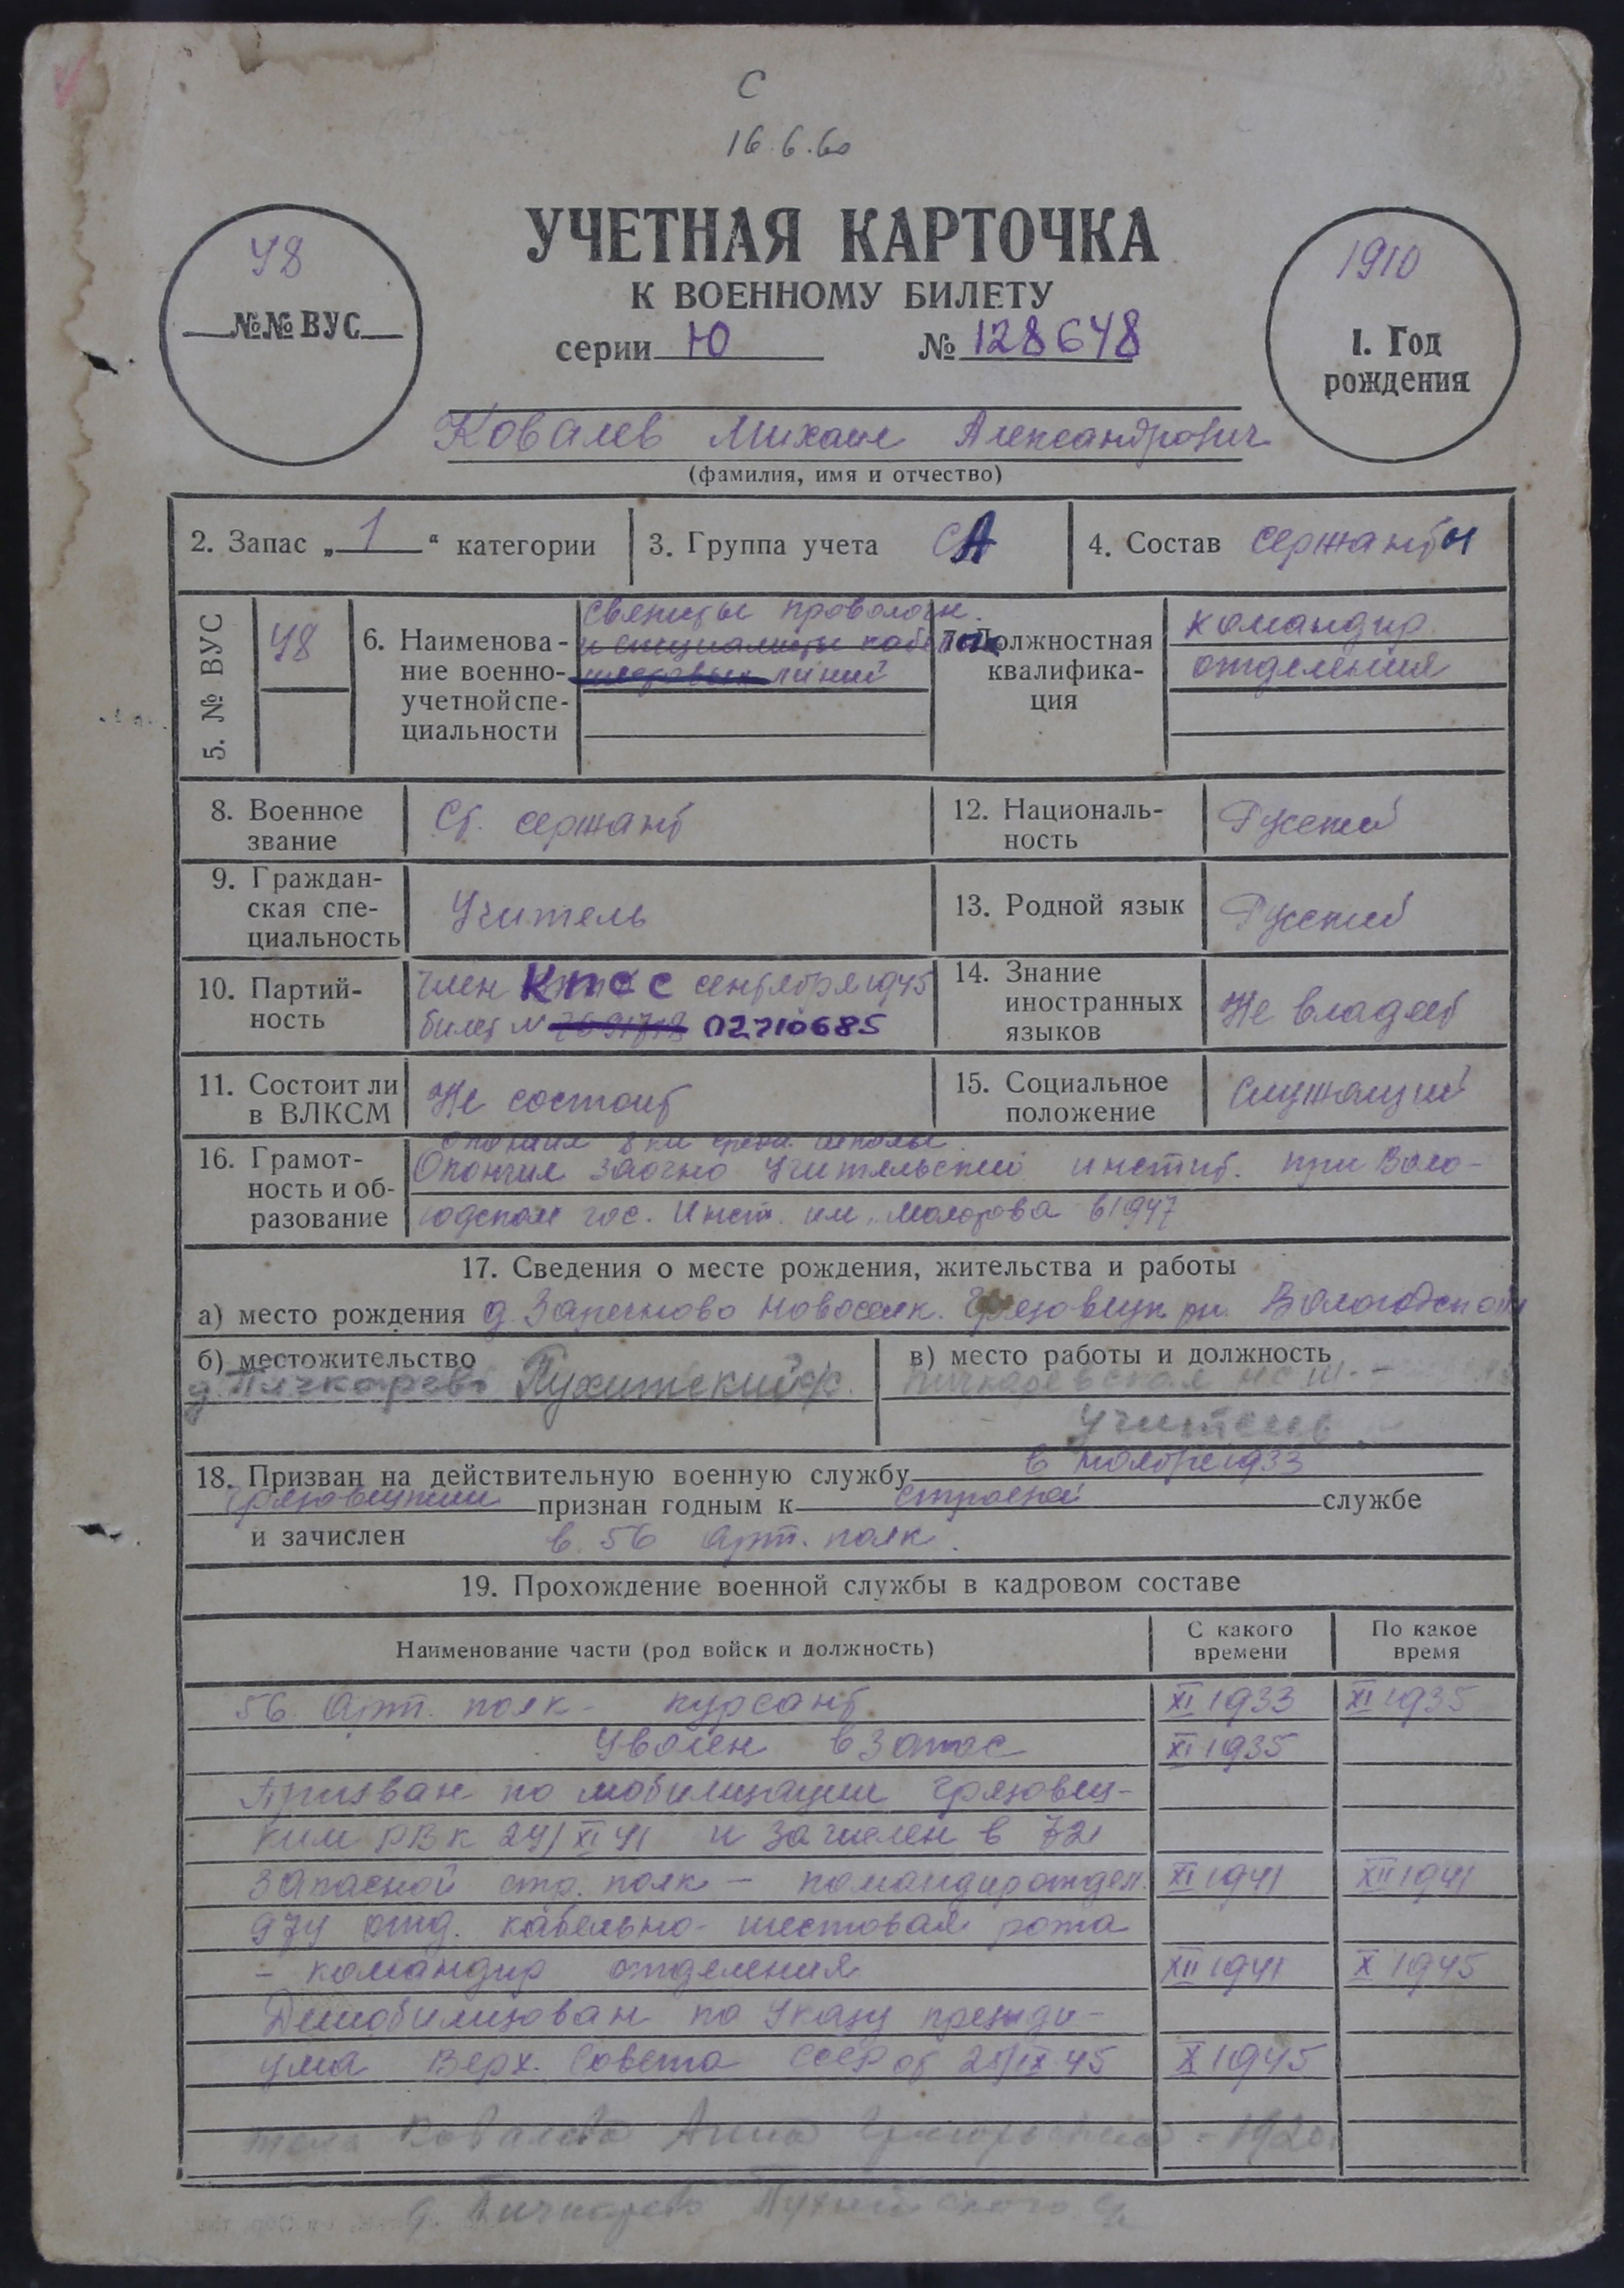 С
16.6.60
УЧЕТНАЯ КАРТОЧКА
К ВОЕННОМУ БИЛЕТУ
серии Ю № 128648
48
№№ ВУС
1910
1. Год
рождения
Ковалев Михаил Александрович
(фамилия, имя и отчество)
2. Запас „1“ категории
3. Группа учета СА
4. Состав сержанты
5. № ВУС
48
6. Наименова-
ние военно-
учетной спе-
циальности
связисты проволочн.
и специалисты
линий
7. Должностная
квалифика-
ция
командир
отделения
8. Военное
звание
Ст. сержант
12. Националь-
ность
Русский
9. Граждан-
ская спе-
циальность
Учитель
13. Родной язык
Русский
10. Партий-
ность
член КПСС сентября 1945
билет № 02210685
14. Знание
иностранных
языков
Не владеет
11. Состоит ли
в ВЛКСМ
Не состоит
15. Социальное
положение
Служащий
16. Грамот-
ность и об-
разование
Окончил 8 кл средн. школы.
Окончил заочно Учительский инстит. при Воло-
годском гос. Инст. им. Молотова в 1947
17. Сведения о месте рождения, жительства и работы
а) место рождения д. Новоселк. Грязовецк рн. Вологодской
б) местожительство
д. Пичкарево Пухитский с/с.
в) место работы и должность
Пичкаревская НСШ. -
Учитель
18. Призван на действительную военную службу в ноябре 1933
Грязовецким признан годным к строевой службе
и зачислен в 56 Арт. полк.
19. Прохождение военной службы в кадровом составе
Наименование части (род войск и должность)
С какого
времени
По какое
время
56 Арт. полк - курсант XI 1933 XI 1935
Уволен в запас XI 1935
Призван по мобилизации Грязовец-
ким РВК 24/XI 41 и зачислен в 721
запасной стр. полк - командир отдел. XI 1941 XII 1941
974 отд. кабельно-шестовая рота
- командир отделения XII 1941 X 1945
Демобилизован по Указу президи-
ума Верх. Совета СССР от 25/IX 45 X 1945
жена Ковалева Анна Григорьевна - 1920
д. Пичкарево Пухитского с/с